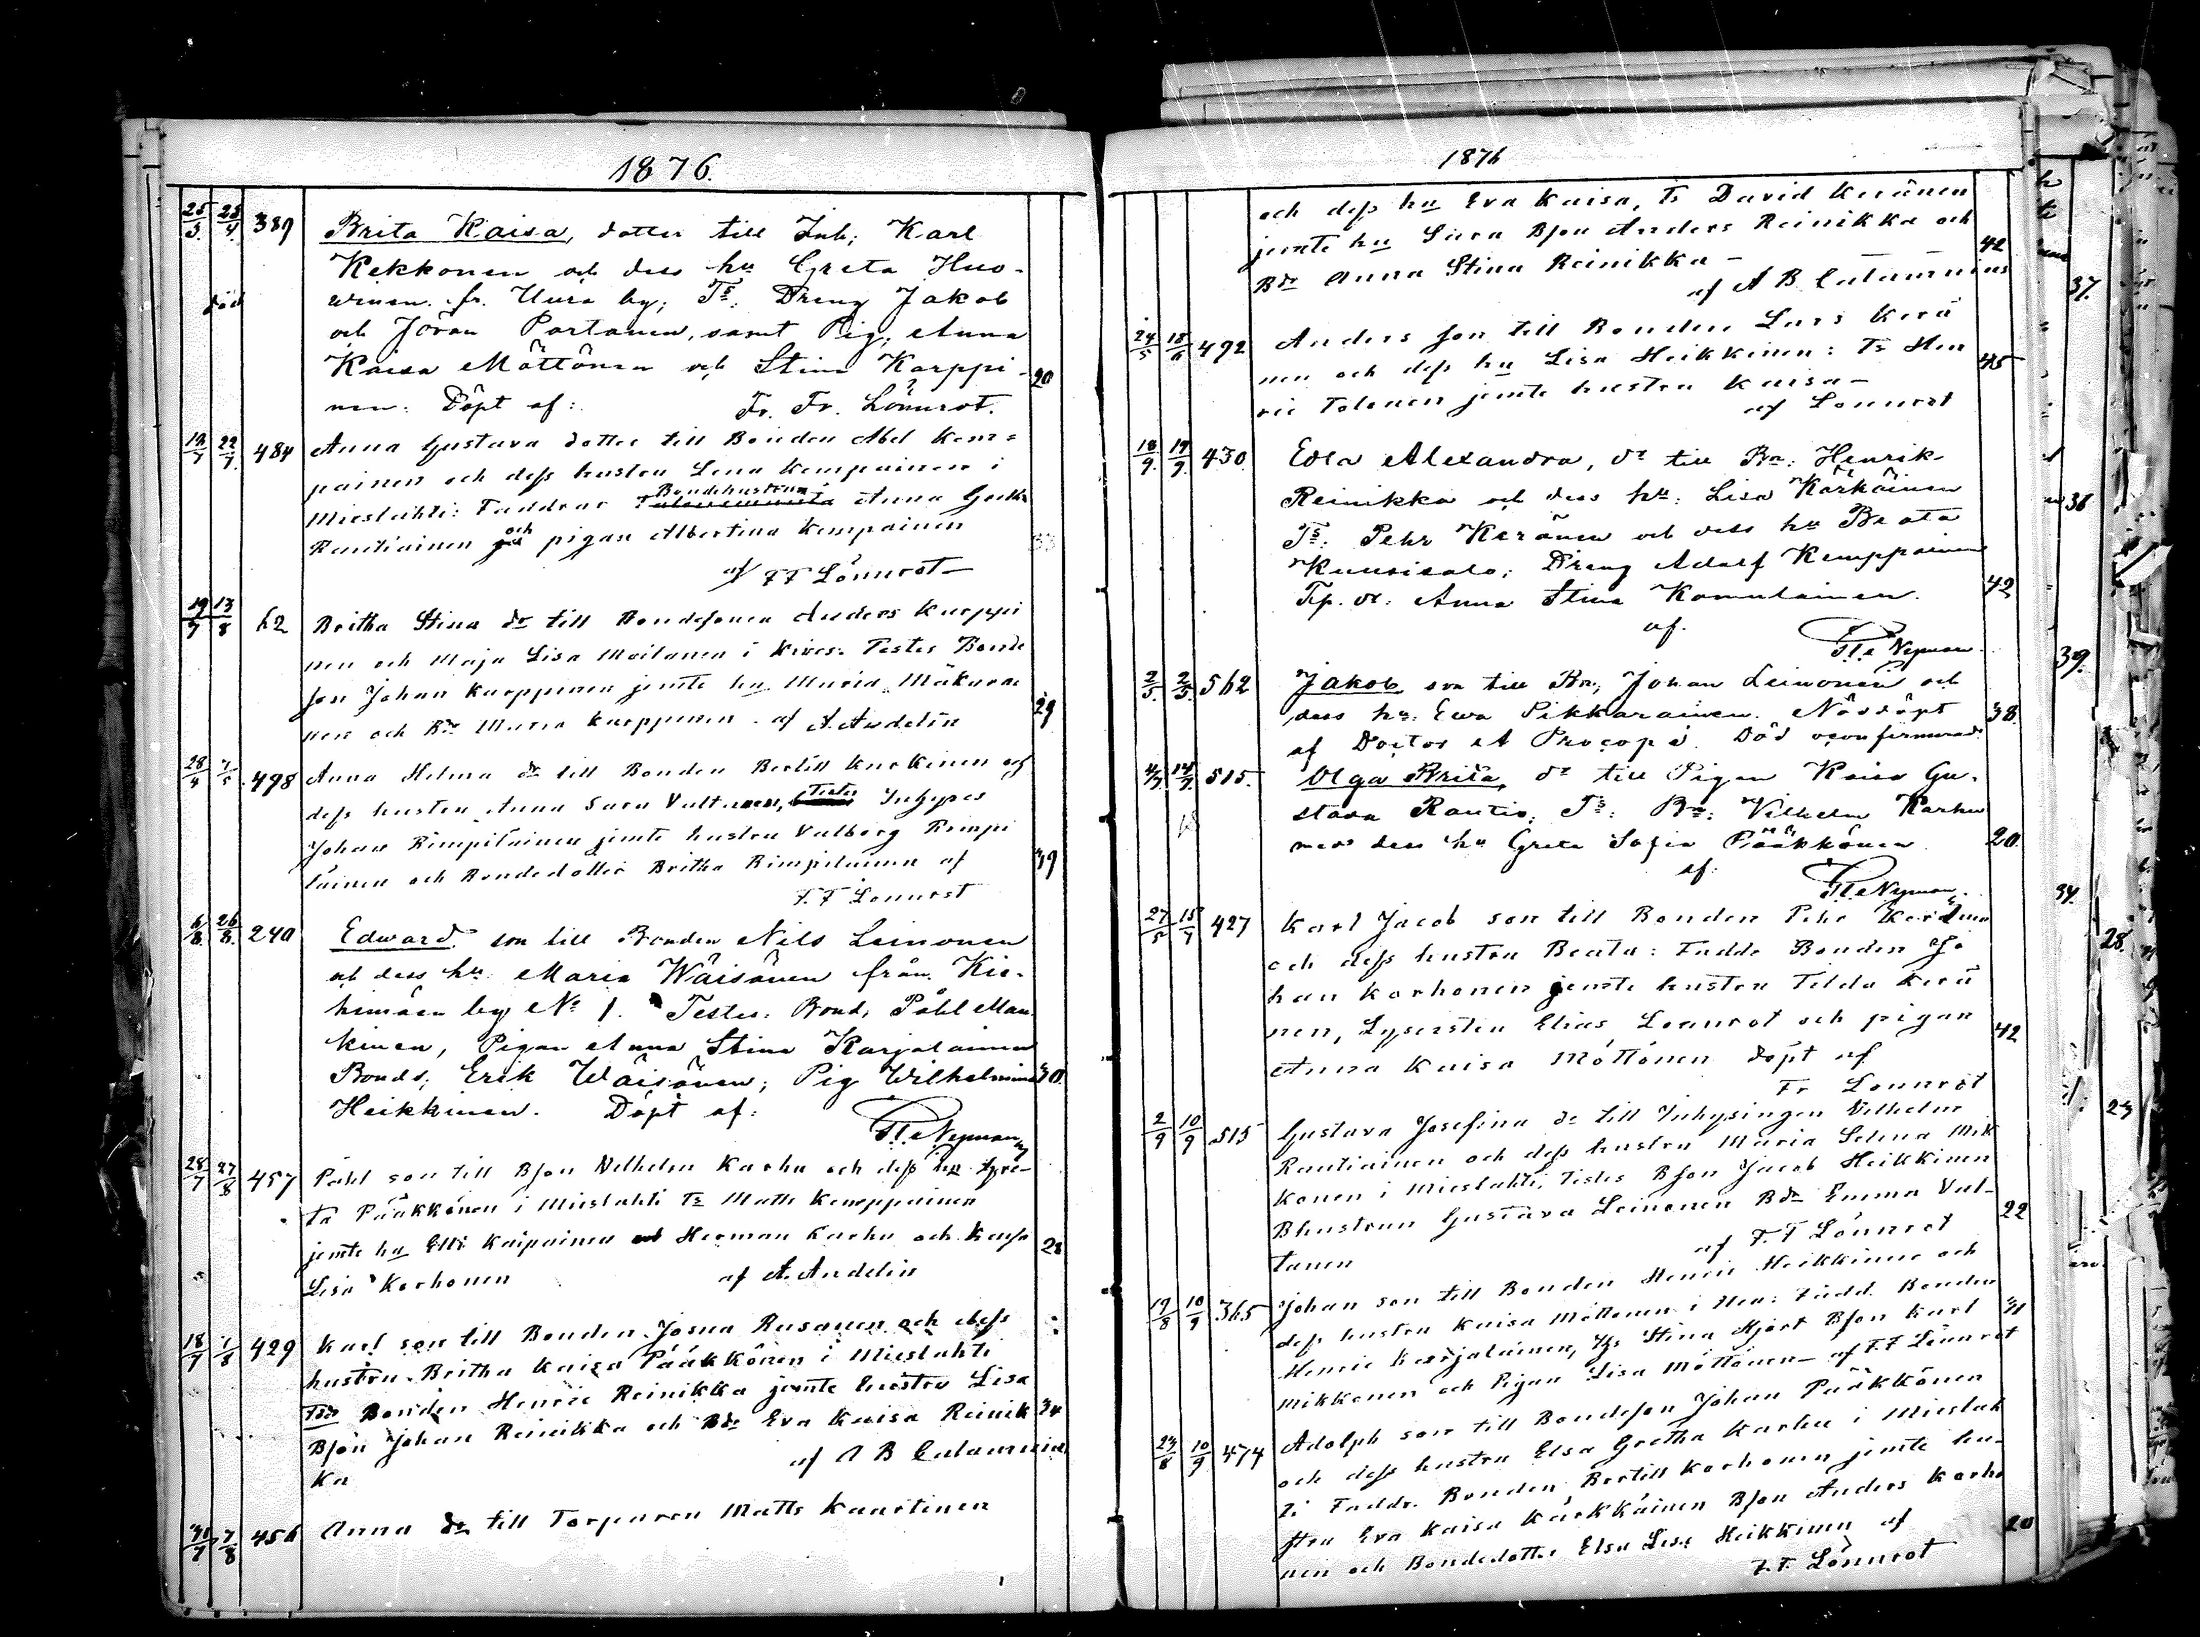 1876.
25/3. 25/4. 389 Brita Kaisa, dotter till Inh; Karl
Kekkonen och dess hu Greta Huo-
vinen. fr. Uura by; Ts: Dreng Jakob
död
och Jöran Partanen, samt Pig; Anna
Kaisa Möttönen och Stina Karppi- 20
nen: Döpt af: Fr. Fr. Lönnrot.
12/7 22/7. 484 Anna Gustava dotter till Bonden Abel Kem=
painen och dess hustru Lena Kempainen i
Bondehustrun
Mieslahti: Faddrar Anna Greta
Rautiainen och pigan Albertina Kempainen 33
af F F Lönnrot
19/7 13/8 62 Britha Stina dr till Bondesonen Anders Karppi
nen och Maja Lisa Moilanen i Kives: Testes Bonde
son Johan Karppinen jemte hu Maria Mäkära 29
nen och Bdr Maria Karppinen. af A. Andelin
28/4 7/5 498 Anna Helena dr till Bonden Bertill Karkinen och
dess hustru Anna Sara Valtanen, Testes Inhyses
Johan Rimpiläinen jemte hustru Valborg Rimpi
läinen och Bondedotter Britha Rimpiläinen af 39
F. F Lönnrot
6/8 26/8. 240 Edward son till Bonden Nils Leinonen
och dess hu: Maria Wäisänen från Kie-
himäen by No 1. Testes: Bond; Påhl Man
kinen, Pigan Anna Stina Karjalainen
Bonds; Erik Wäisänen; Pig Wilhelmina 30
Heikkinen. Döpt af:
Nyman
28/7 27/8 457 Påhl son till Bson Vilhelm Karhu och dess hu Gre-
ta Pääkkönen i Mieslahti Ts Matts Kemppainen
jemte hu Elli Kaipainen och Herman Karhu och Kajsa 28
Lisa Korhonen af A. Andelin
18/7 7/8 429 Karl son till Bonden Josua Rusanen och dess
hustru Britha Kaisa Pääkkönen i Mieslahti
Bonden Henric Reinikka jemte hustru Lisa
Bson Johan Reinikka och Bdr Eva Kaisa Reinik 34
ka af A B Calamnius
30/7 7/8 456 Anna dr till Torparen Matts Kaartinen
1876
och dess hu Eva Kaisa, Ts David Keränen
jemte hu Sara Bson Anders Reinikka och 42
Bdr Anna Stina Reinikka -
af A B Calamnius
24/5 18/6 492 Anders son till Bonden Lars Kerä
nen och dess hu Lisa Heikkinen: Ts Hen 45
ric Tolonen jemte hustru Kaisa -
af Lönnrot
18/9. 19/9. 430 Edla Alexandra, dr till Bn: Henrik
Reinikka och dess hu: Lisa Karkäinen
Ts: Pehr Keränen och dess hu Beata
Kuusisalo; Dreng Adolf Kemppainen
Trp. dr: Anna Stina Komulainen. 42
af.
Nyman.
2/5. 2/5. 562 Jakob son till Bn; Johan Leinonen och
dess hu: Ewa Pikkarainen. Nöddöpt 38.
af Doctor A Procopé. Död oconfirmerad.
4/9 14/9. 515. Olga Brita, dr till Pigan Kaisa Gu-
stava Rautio; Ts: Bn: Vilhelm Karhu
med dess hu Greta Sofia Pääkkönen 20.
af:
Nyman.
27/5 15/7 427 Karl Jacob son till Bonden Pehr Keränen
och dess hustru Beata: Fadde Bonden Jo
han Korhonen jemte hustru Tilda Kerä
nen, Elias Lönnrot och pigan 42
Anna Kaisa Möttönen döpt af
Fr Lönnrot
2/9 10/9 515 Gustava Josefina dr till Inhysingen Vilhelm
Rautiainen och dess hustru Maria Selina Mik
konen i Mieslahti, testes Bson Jacob Heikkinen
Bhustrun Gustava Leinonen Bdr Emma Val- 22
tanen af F. F Lönnrot
19/8 10/9 365 Johan son till Bonden Henric Heikkinen och
dess hustru Kaisa Möttönen i Ura: Fadd. Bonden 31
Henric Karjalainen, Stina Hjort Bson Karl
Mikkonen och Pigan Lisa Möttönen - af F. F Lönnrot
23/8 10/9 474 Adolph son till Bondeson Johan Pääkkönen
och dess hustru Elsa Gretha Karhu i Mieslah
ti Faddr. Bonden Bertill Korhonen jemte hu-
stru Eva Kaisa Kärkkäinen Bson Anders Korho
nen och Bondedotter Elsa Lisa Heikkinen af 20
F. F. Lönnrot
37.
38
39.
34.
28.
23